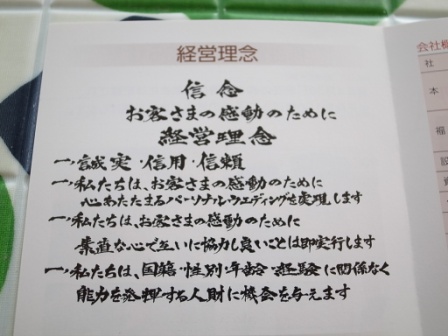 経営理念
信念
お客さまの感動のために
経営理念
一、誠実・信用・信頼
一、私たちは、お客さまの感動のために
心あたたまるパーソナル・ウエディングを実現します
一、私たちは、お客さまの感動のために
素直な心で互いに協力し良いことは即実行します
一、私たちは、国籍・性別・年齢・経験に関係なく
能力を発揮する人財に機会を与えます
会社概
社
本